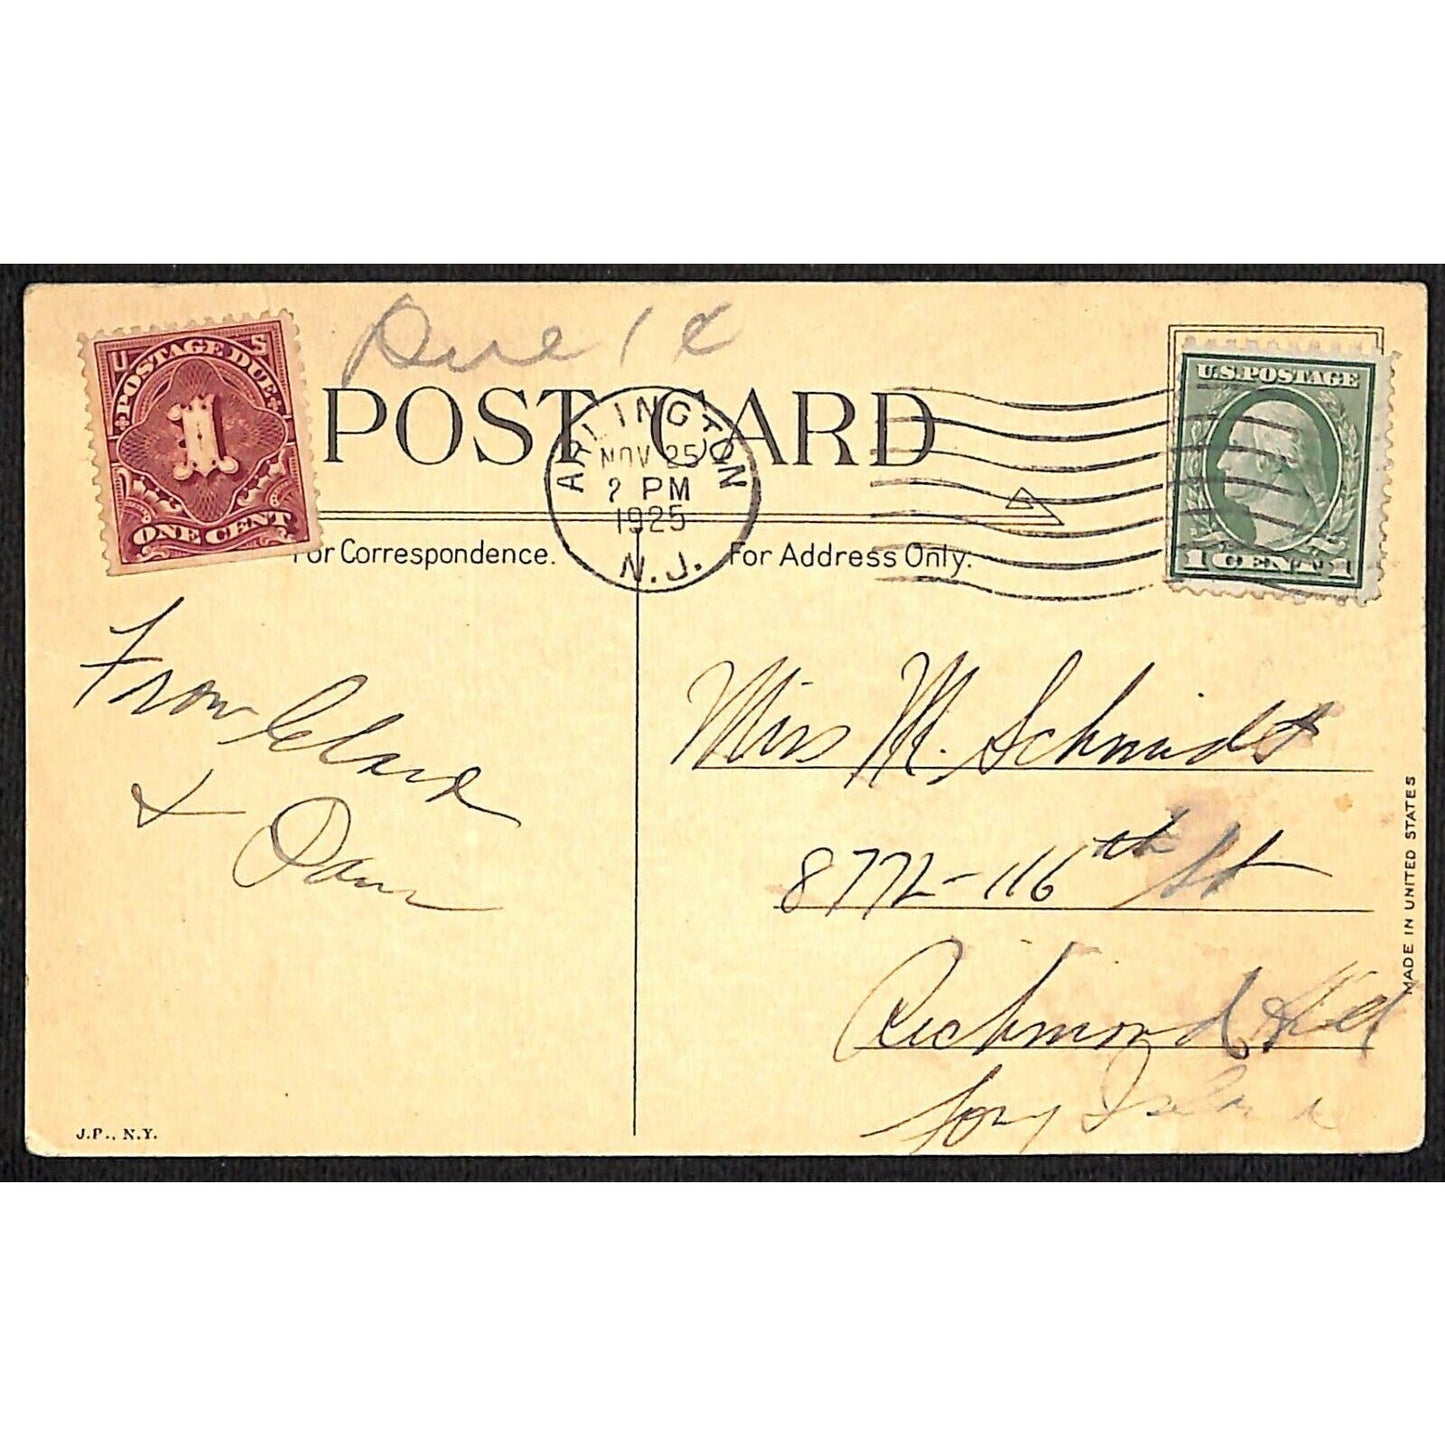 Due 1¢
U S
POSTAGE DUE
1
ONE CENT
POST CARD
ARLINGTON
NOV 25
2 PM
1925
N.J.
U.S. POSTAGE
1 CENT 1
For Correspondence.
For Address Only.
From Clara
& Dan
Miss M. Schmidt
8772-116th St
Richmond Hill
Long Island
MADE IN UNITED STATES
J.P., N.Y.